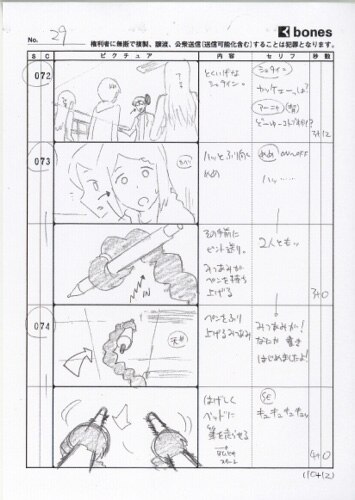 No. 29
bones
権利者に無断で複製、譲渡、公衆送信(送信可能化含む)することは犯罪となります。
S C ピクチュア 内容 セリフ 秒数
072
とくいげな
シュタイン。
シュタイン
3+12
073
ハッとふり向く
ON,OFF
ハッ……
その手前に
ピント送り。
みつあみが
ペンを持ち
上げる
2人ともッ
3+0
074
ペンをふり
上げるみつあみ
みつあみが!
なにか 書き
はじめましたよ!
はげしく
ベッドに
筆を走らせる
SE
キュキュキュキュッ
4+0
(10+12)